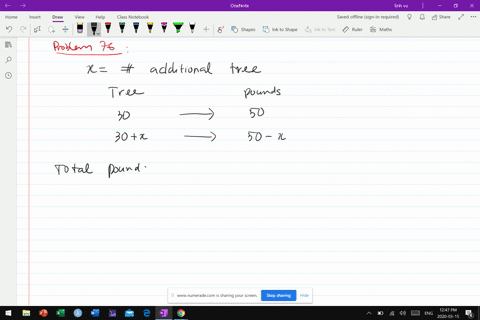 OneNote
linh vu
File Home Insert Draw View Help Class Notebook
Saved offline (sign in required)
Share
Shapes Ink to Shape Ink to Text Ruler Maths
Problem 76 :
x = # additional tree
Tree pounds
30 → 50
30 + x → 50 - x
Total pound.
www.numerade.com is sharing your screen. Stop sharing Hide
12:47 PM
ENG
2020-03-15